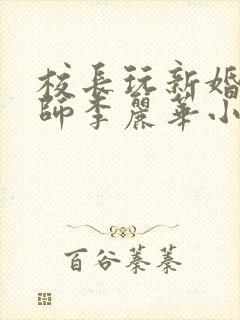 校長玩新婚
師李麗華小
百谷蓁蓁